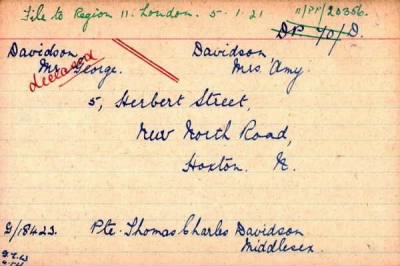 File to Region 11. London. 5-1-21
11/PP/20356.
DP 70/D.
Davidson Davidson
Mr. George. Mrs. Amy
deceased
5, Herbert Street,
New North Road,
Hoxton. N.
G/18423. Pte. Thomas Charles Davidson
Middlesex.